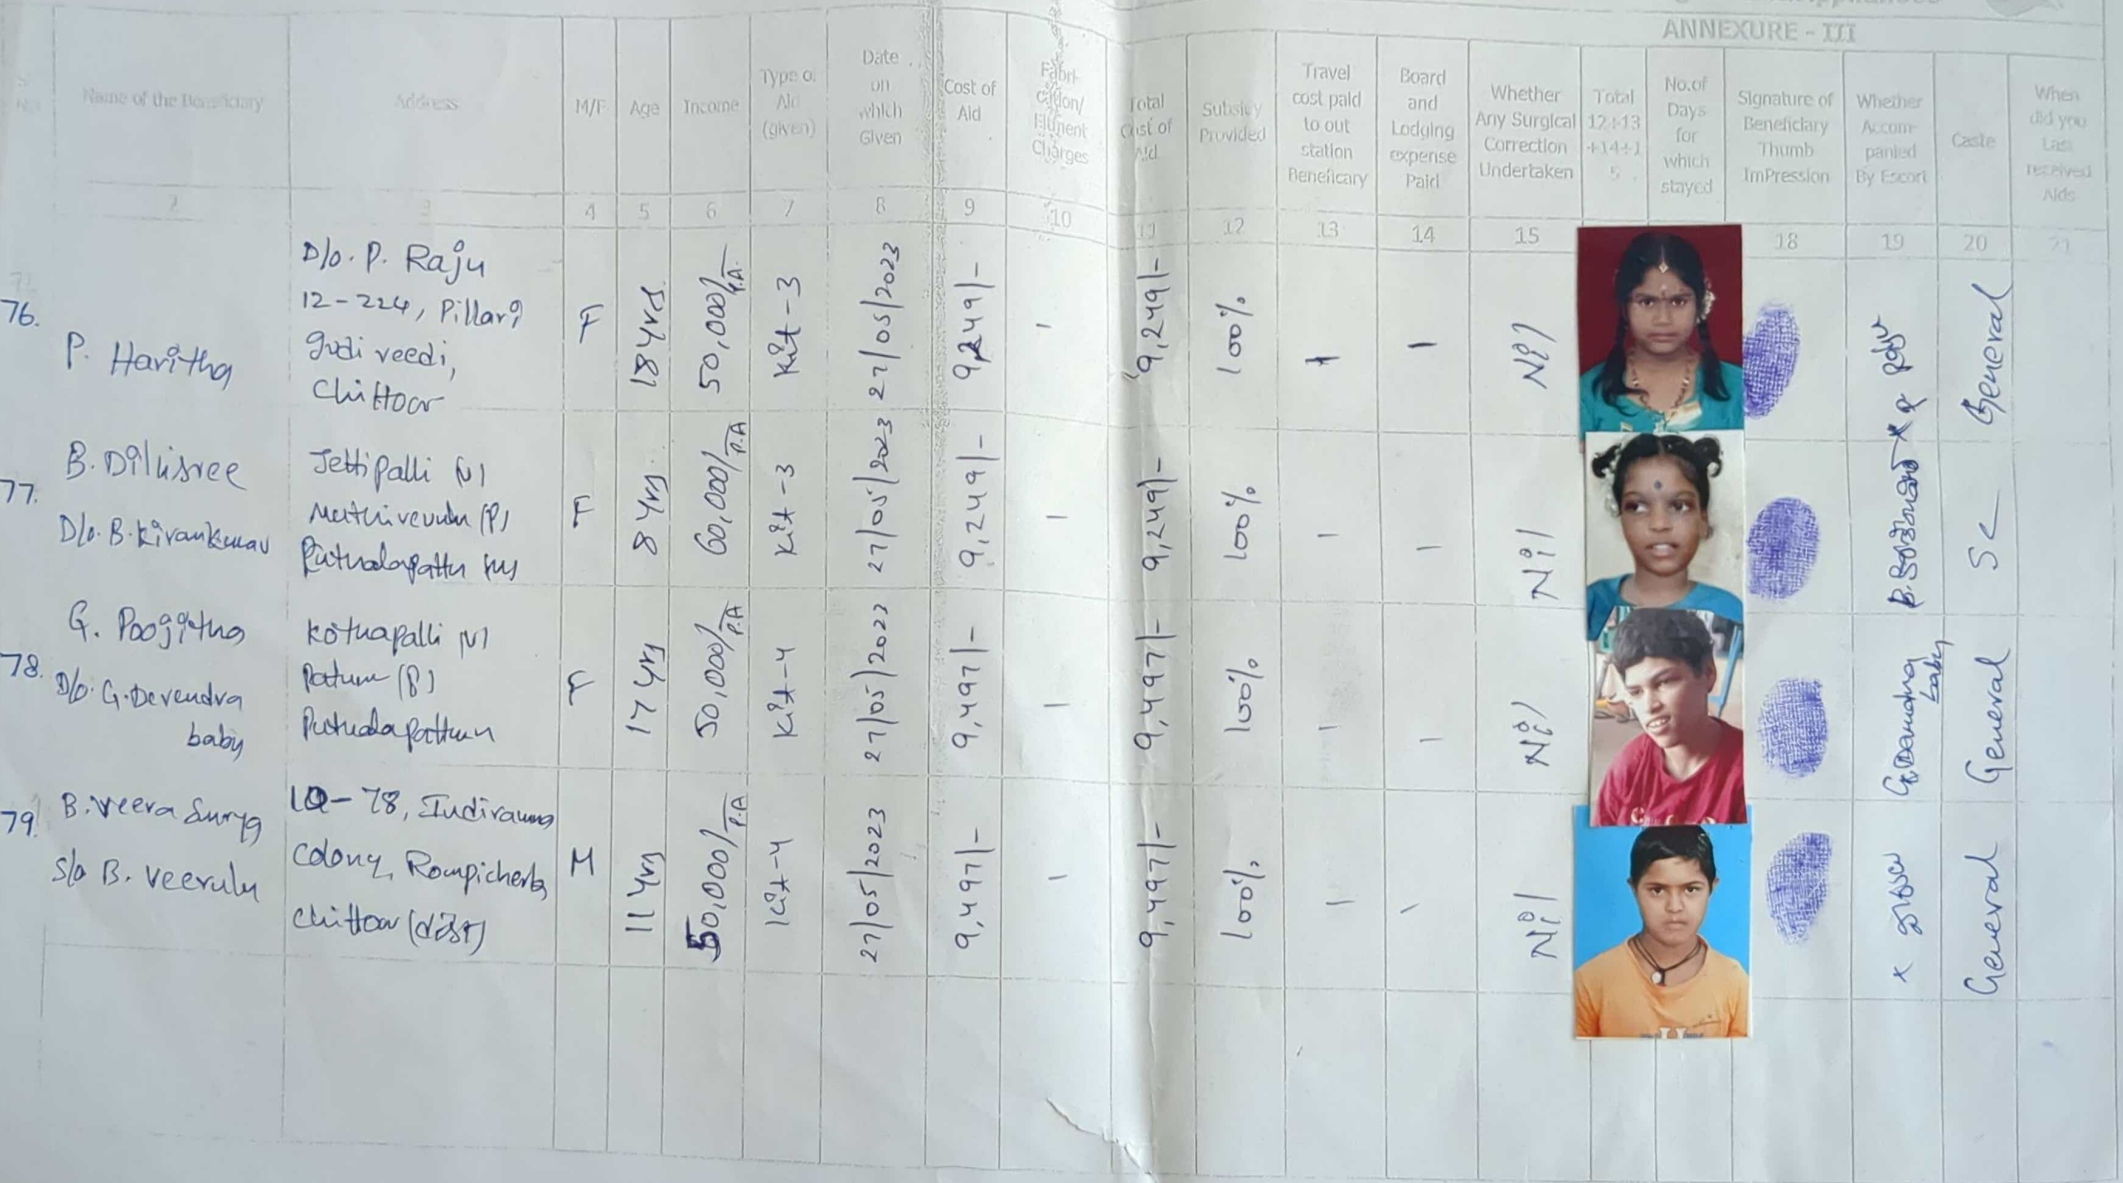 ANNEXURE - III
Name of the Beneficiary
Address
M/F
Age
Income
Type of
Aid
(given)
Date
on
which
Given
Cost of
Aid
Fabri-
cation/
Fitment
Charges
Total
Cost of
Aid
Subsidy
Provided
Travel
cost paid
to out
station
Beneficary
Board
and
Lodging
expense
Paid
Whether
Any Surgical
Correction
Undertaken
Total
12+13
+14+1
5
No.of
Days
for
which
stayed
Signature of
Beneficiary
Thumb
ImPression
Whether
Accom-
panied
By Escort
Caste
When
did you
Last
received
Aids
2 3 4 5 6 7 8 9 10 11 12 13 14 15 18 19 20 21
76.
P. Haritha
D/o. P. Raju
12-224, Pillari
gudi veedi,
Chittoor
F
18 yrs
50,000/ P.A.
Kit-3
27/05/2023
9,249/-
-
9,249/-
100%
-
-
Nil
General
77.
B. Dilisree
D/o. B. Kirankumar
Jettipalli (V)
(P)
Puthalapattu (M)
F
8 yrs
60,000/ P.A
Kit-3
27/05/2023
9,249/-
-
9,249/-
100%
-
-
Nil
SC
78.
G. Poojitha
D/o. G. Devendra
baby
Kothapalli (V)
(P)
Puthalapattu
F
17 yrs
50,000/ P.A
Kit-4
27/05/2022
9,497/-
-
9,497/-
100%
-
-
Nil
baby
General
79.
B. Veera Surya
S/o B. Veerulu
10-78, Indiramma
Colony, Rompicherla,
Chittoor (dist)
M
11 yrs
50,000/ P.A
Kit-4
27/05/2023
9,497/-
-
9,497/-
100%
-
-
Nil
General